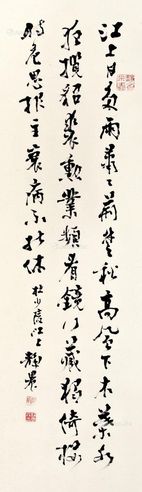 江上日多雨蕭々荊楚秋高風下木葉永
夜攬貂裘勳業頻看鏡行藏獨倚樓
時危思報主衰病不能休 杜少陵江上